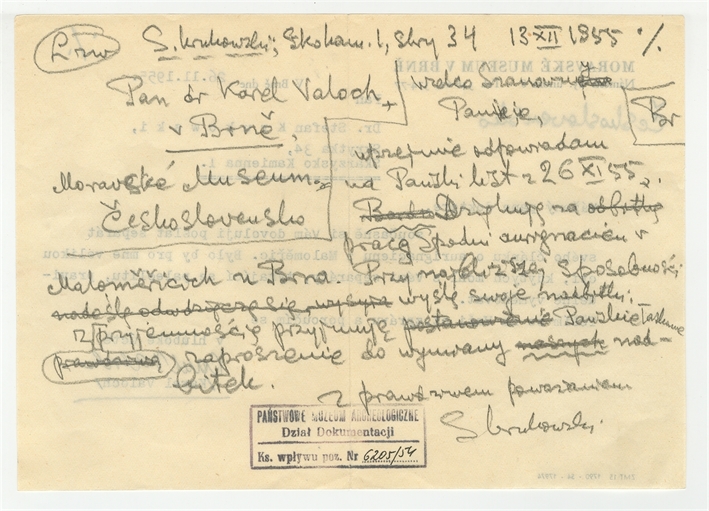 S. Krukowski; Skoham. 1, Skry 34 13 XII 1955 %
Pan dr Karel Valoch
v Brně,
Moravské Museum
Československo
Wielce Szanowny
Panie,
uprzejmie odpowiadam
na Pański list z 26 XI 55 r.
Dziękuję za odbitkę
pracę Spodni aurignacien v
Maloměřicích u Brna Przy najbliższej sposobności
nadeślę odwdzięczę się wyślę swoje nadbitki;
z przyjemnością przyjmuję postanowienie Pańskie łaskawe
prawdziwą zaproszenie do wymiany naszych nad-
bitek.
z prawdziwem poważaniem
S Krukowski.
PAŃSTWOWE MUZEUM ARCHEOLOGICZNE
Dział Dokumentacji
Ks. wpływu poz. Nr 6205/54